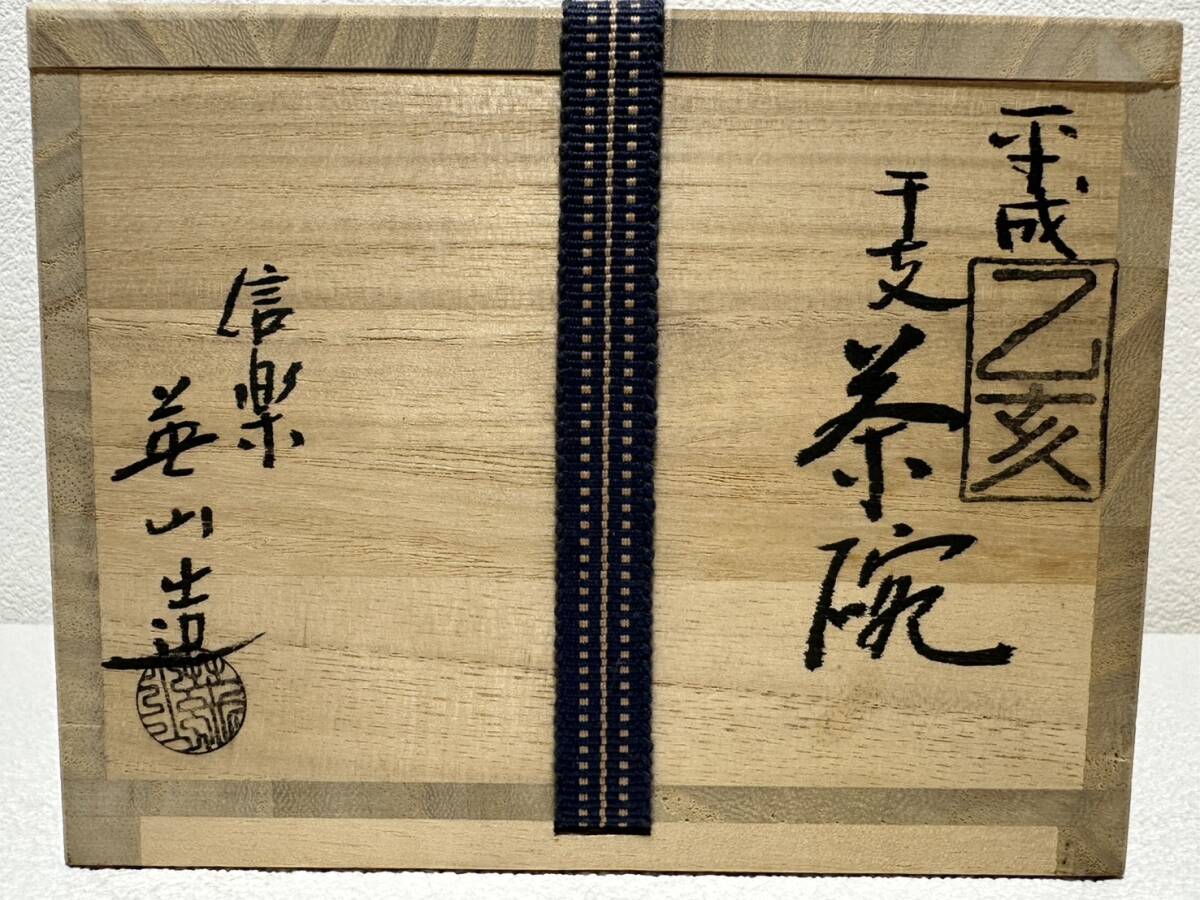 平成乙亥
干支茶碗
信楽
英山造